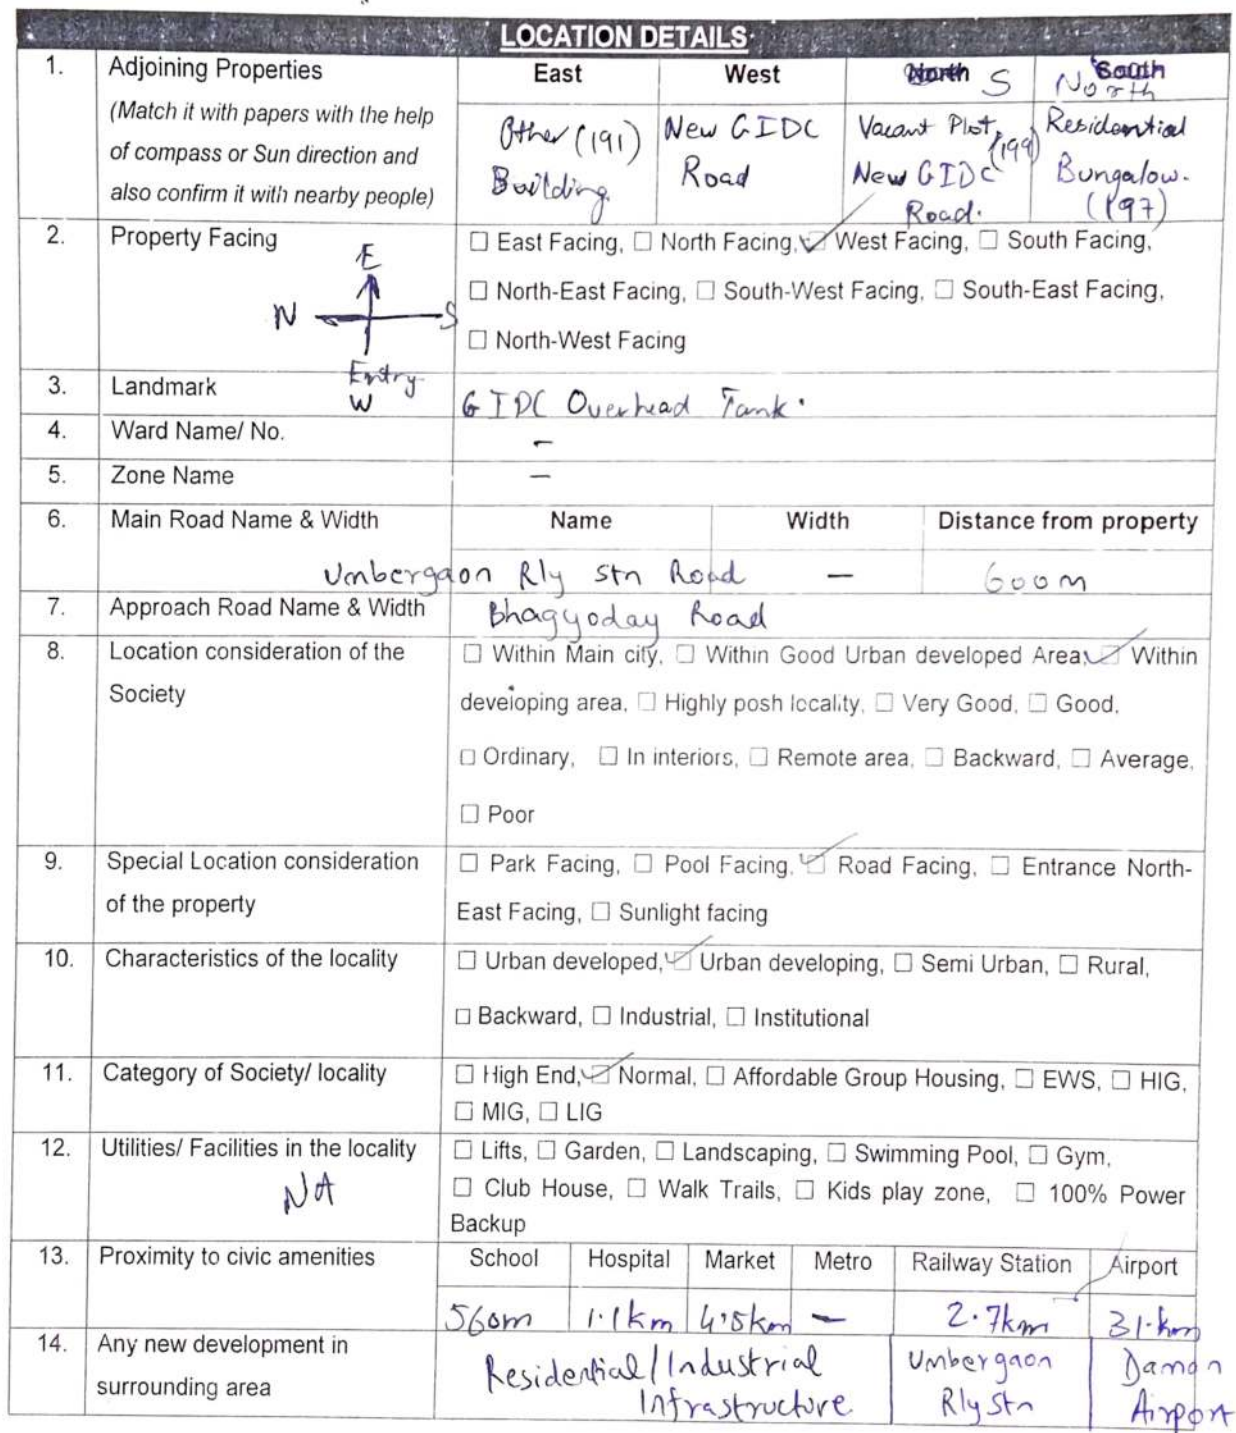 LOCATION DETAILS
1. Adjoining Properties East West North S South North
(Match it with papers with the help of compass or Sun direction and also confirm it with nearby people)
Other (191) Building
New GIDC Road
Vacant Plot, (199) New GIDC Road.
Residential Bungalow. (197)
2. Property Facing
E
N S
Entry
W
☐ East Facing, ☐ North Facing, ☑ West Facing, ☐ South Facing,
☐ North-East Facing, ☐ South-West Facing, ☐ South-East Facing,
☐ North-West Facing
3. Landmark GIDC Overhead Tank.
4. Ward Name/ No. -
5. Zone Name -
6. Main Road Name & Width Name Width Distance from property
Umbergaon Rly Stn Road - 600m
7. Approach Road Name & Width Bhagyoday Road
8. Location consideration of the Society
☐ Within Main city, ☐ Within Good Urban developed Area, ☑ Within
developing area, ☐ Highly posh locality, ☐ Very Good, ☐ Good,
☐ Ordinary, ☐ In interiors, ☐ Remote area, ☐ Backward, ☐ Average,
☐ Poor
9. Special Location consideration of the property
☐ Park Facing, ☐ Pool Facing, ☑ Road Facing, ☐ Entrance North-
East Facing, ☐ Sunlight facing
10. Characteristics of the locality
☐ Urban developed, ☑ Urban developing, ☐ Semi Urban, ☐ Rural,
☐ Backward, ☐ Industrial, ☐ Institutional
11. Category of Society/ locality
☐ High End, ☑ Normal, ☐ Affordable Group Housing, ☐ EWS, ☐ HIG,
☐ MIG, ☐ LIG
12. Utilities/ Facilities in the locality
NA
☐ Lifts, ☐ Garden, ☐ Landscaping, ☐ Swimming Pool, ☐ Gym,
☐ Club House, ☐ Walk Trails, ☐ Kids play zone, ☐ 100% Power
Backup
13. Proximity to civic amenities School Hospital Market Metro Railway Station Airport
560m 1.1km 4.5km - 2.7km 31.km
14. Any new development in surrounding area
Residential/Industrial Infrastructure
Umbergaon Rly Stn
Daman Airport